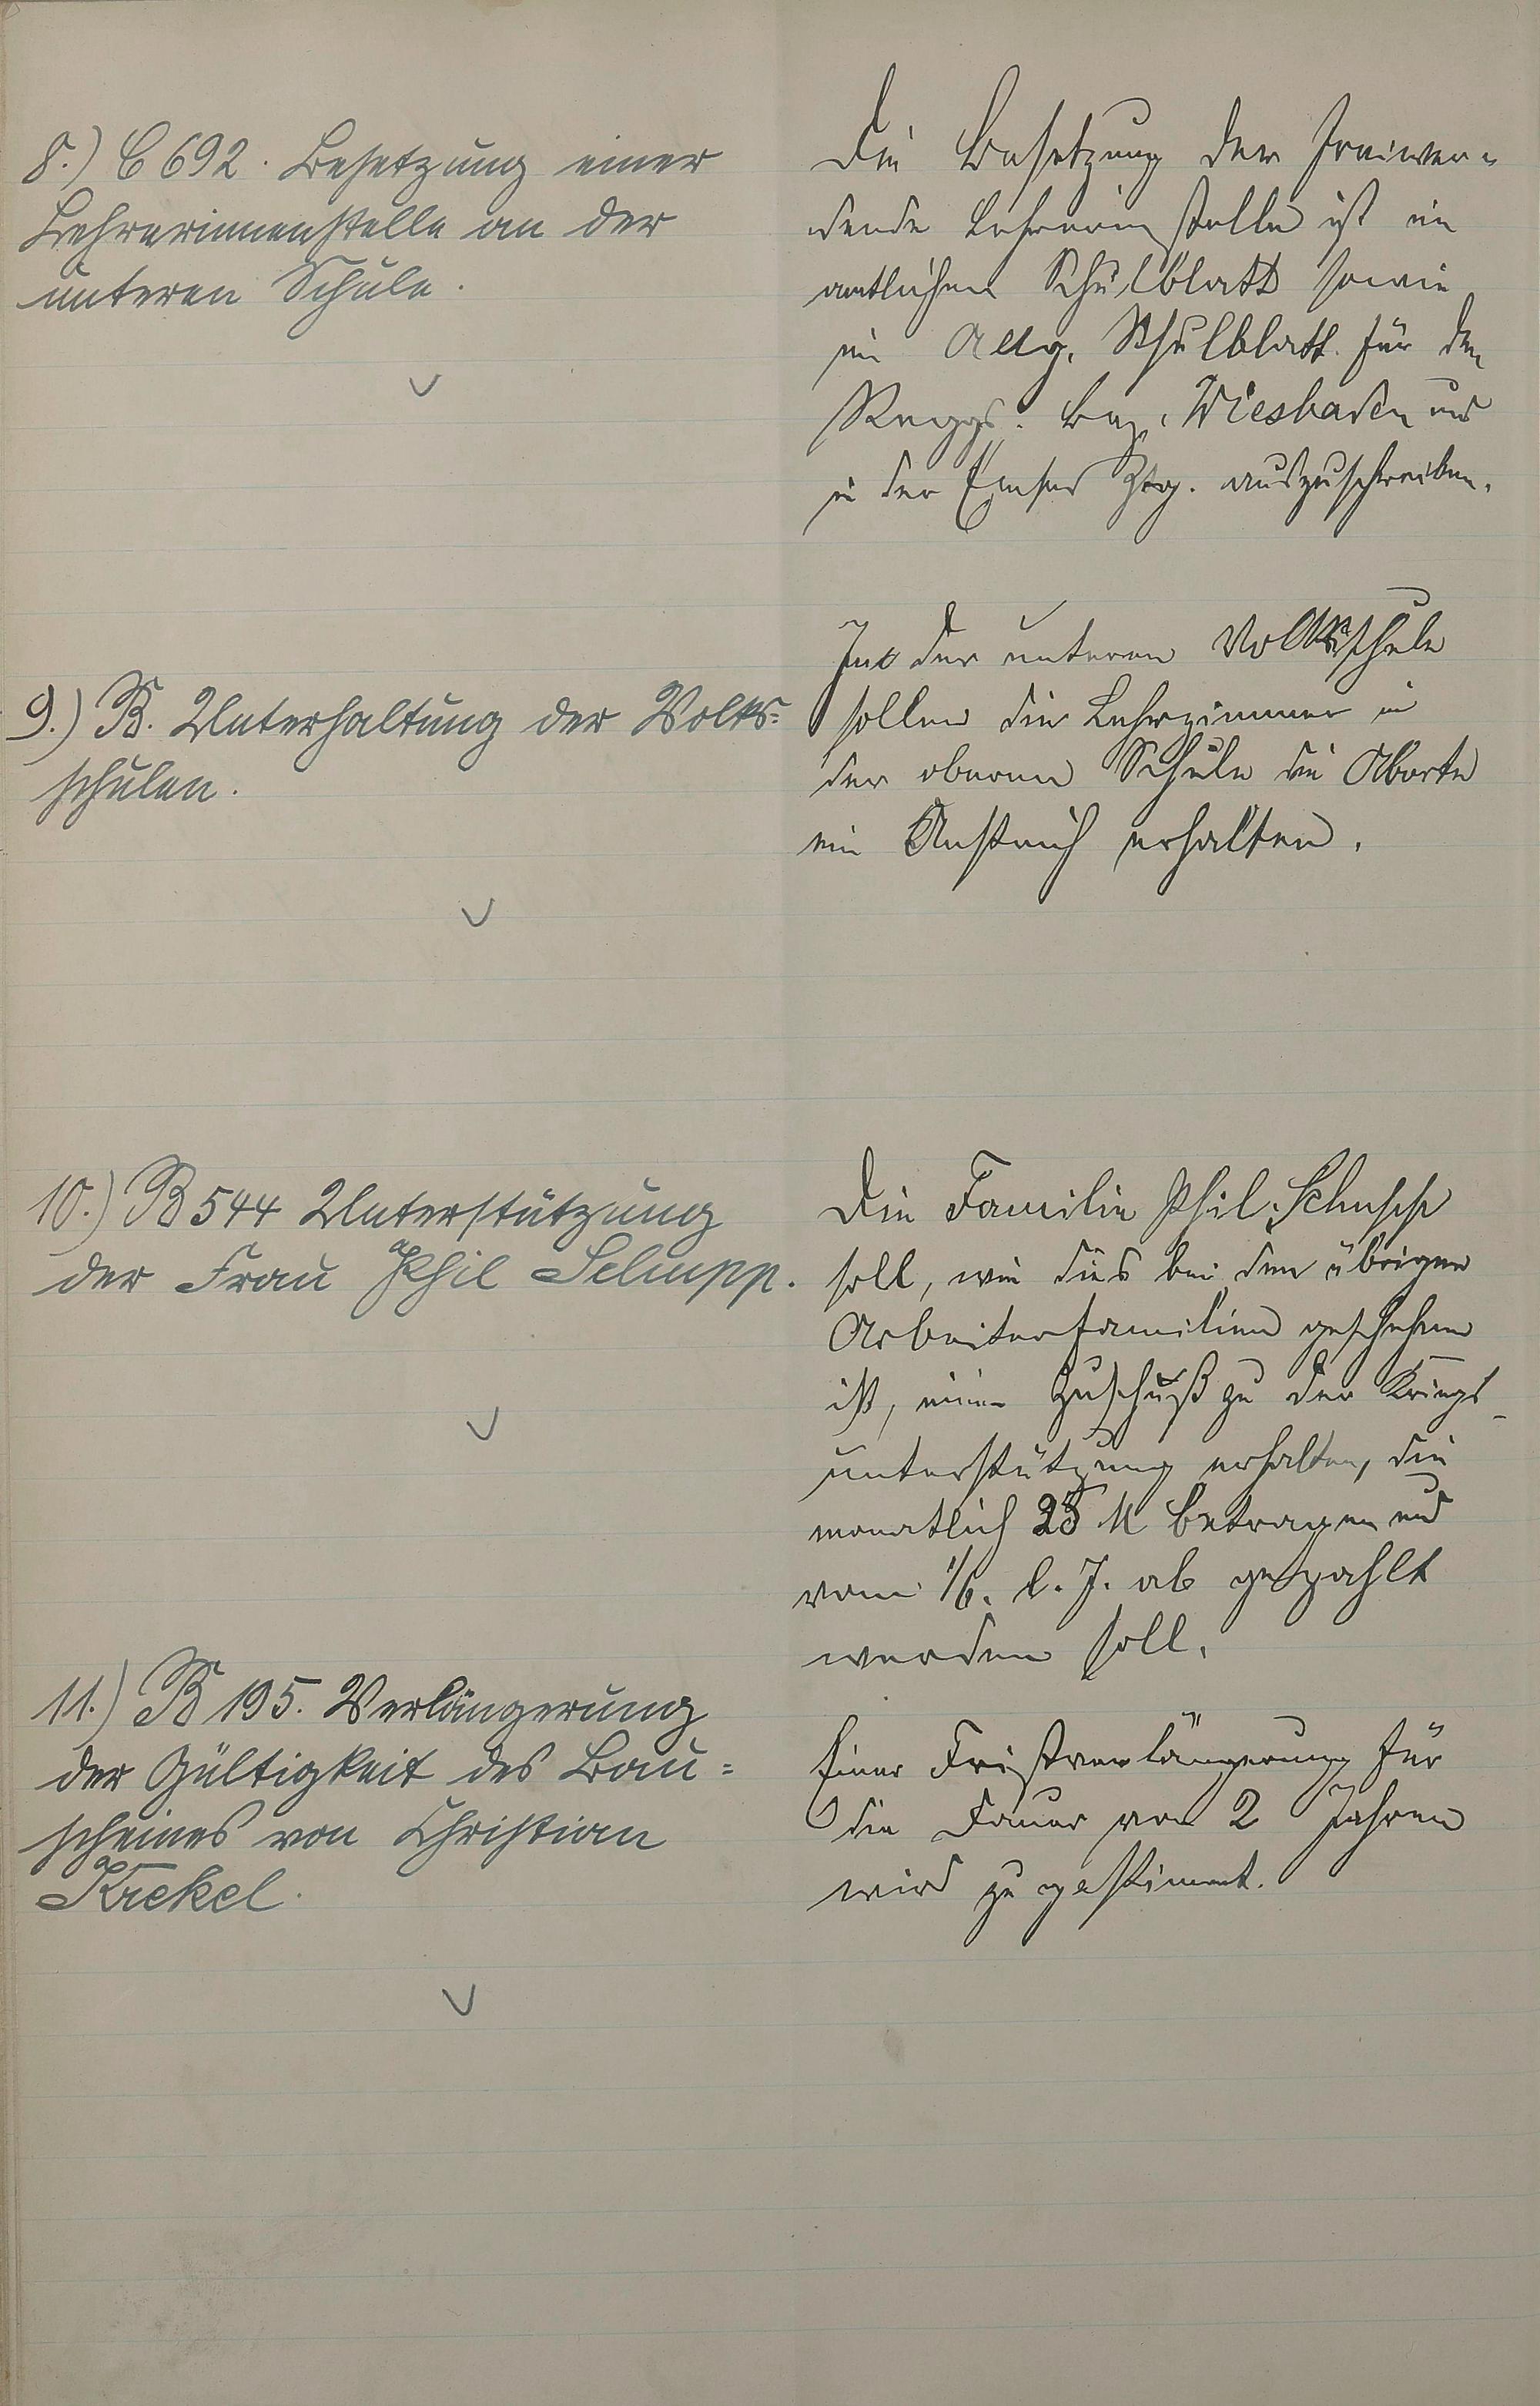 8.) C 692. Besetzung einer
Lehrerinnenstelle an der
unteren Schule.
Die Besetzung der freiwer-
dende Lehrerinstelle ist im
amtlichen Schulblatt sowie
im Allg. Schulblatt für den
Reggs. Bez. Wiesbaden und
in der Emser Ztg. auszuschreiben.
9.) B. Unterhaltung der Volks-
schulen.
In der unteren Volksschule
sollen die Lehrzimmer in
der oberen Schule die Aborte
ein Anstrich erhalten.
10.) B 544 Unterstützung
der Frau Phil Schupp.
Die Familie Phil. Schupp
soll, wie dies bei den übrigen
Arbeiterfamilien geschehen
ist, einen Zuschuß zu der Kriegs-
unterstützung erhalten, die
monatlich 25 M betragen und
vom 1/6. l. J. ab gezahlt
werden soll.
11.) B 195. Verlängerung
der Gültigkeit des Bau-
scheines von Christian
Krekel.
Einer Fristverlängerung für
die Dauer von 2 Jahren
wird zu gestimmt.